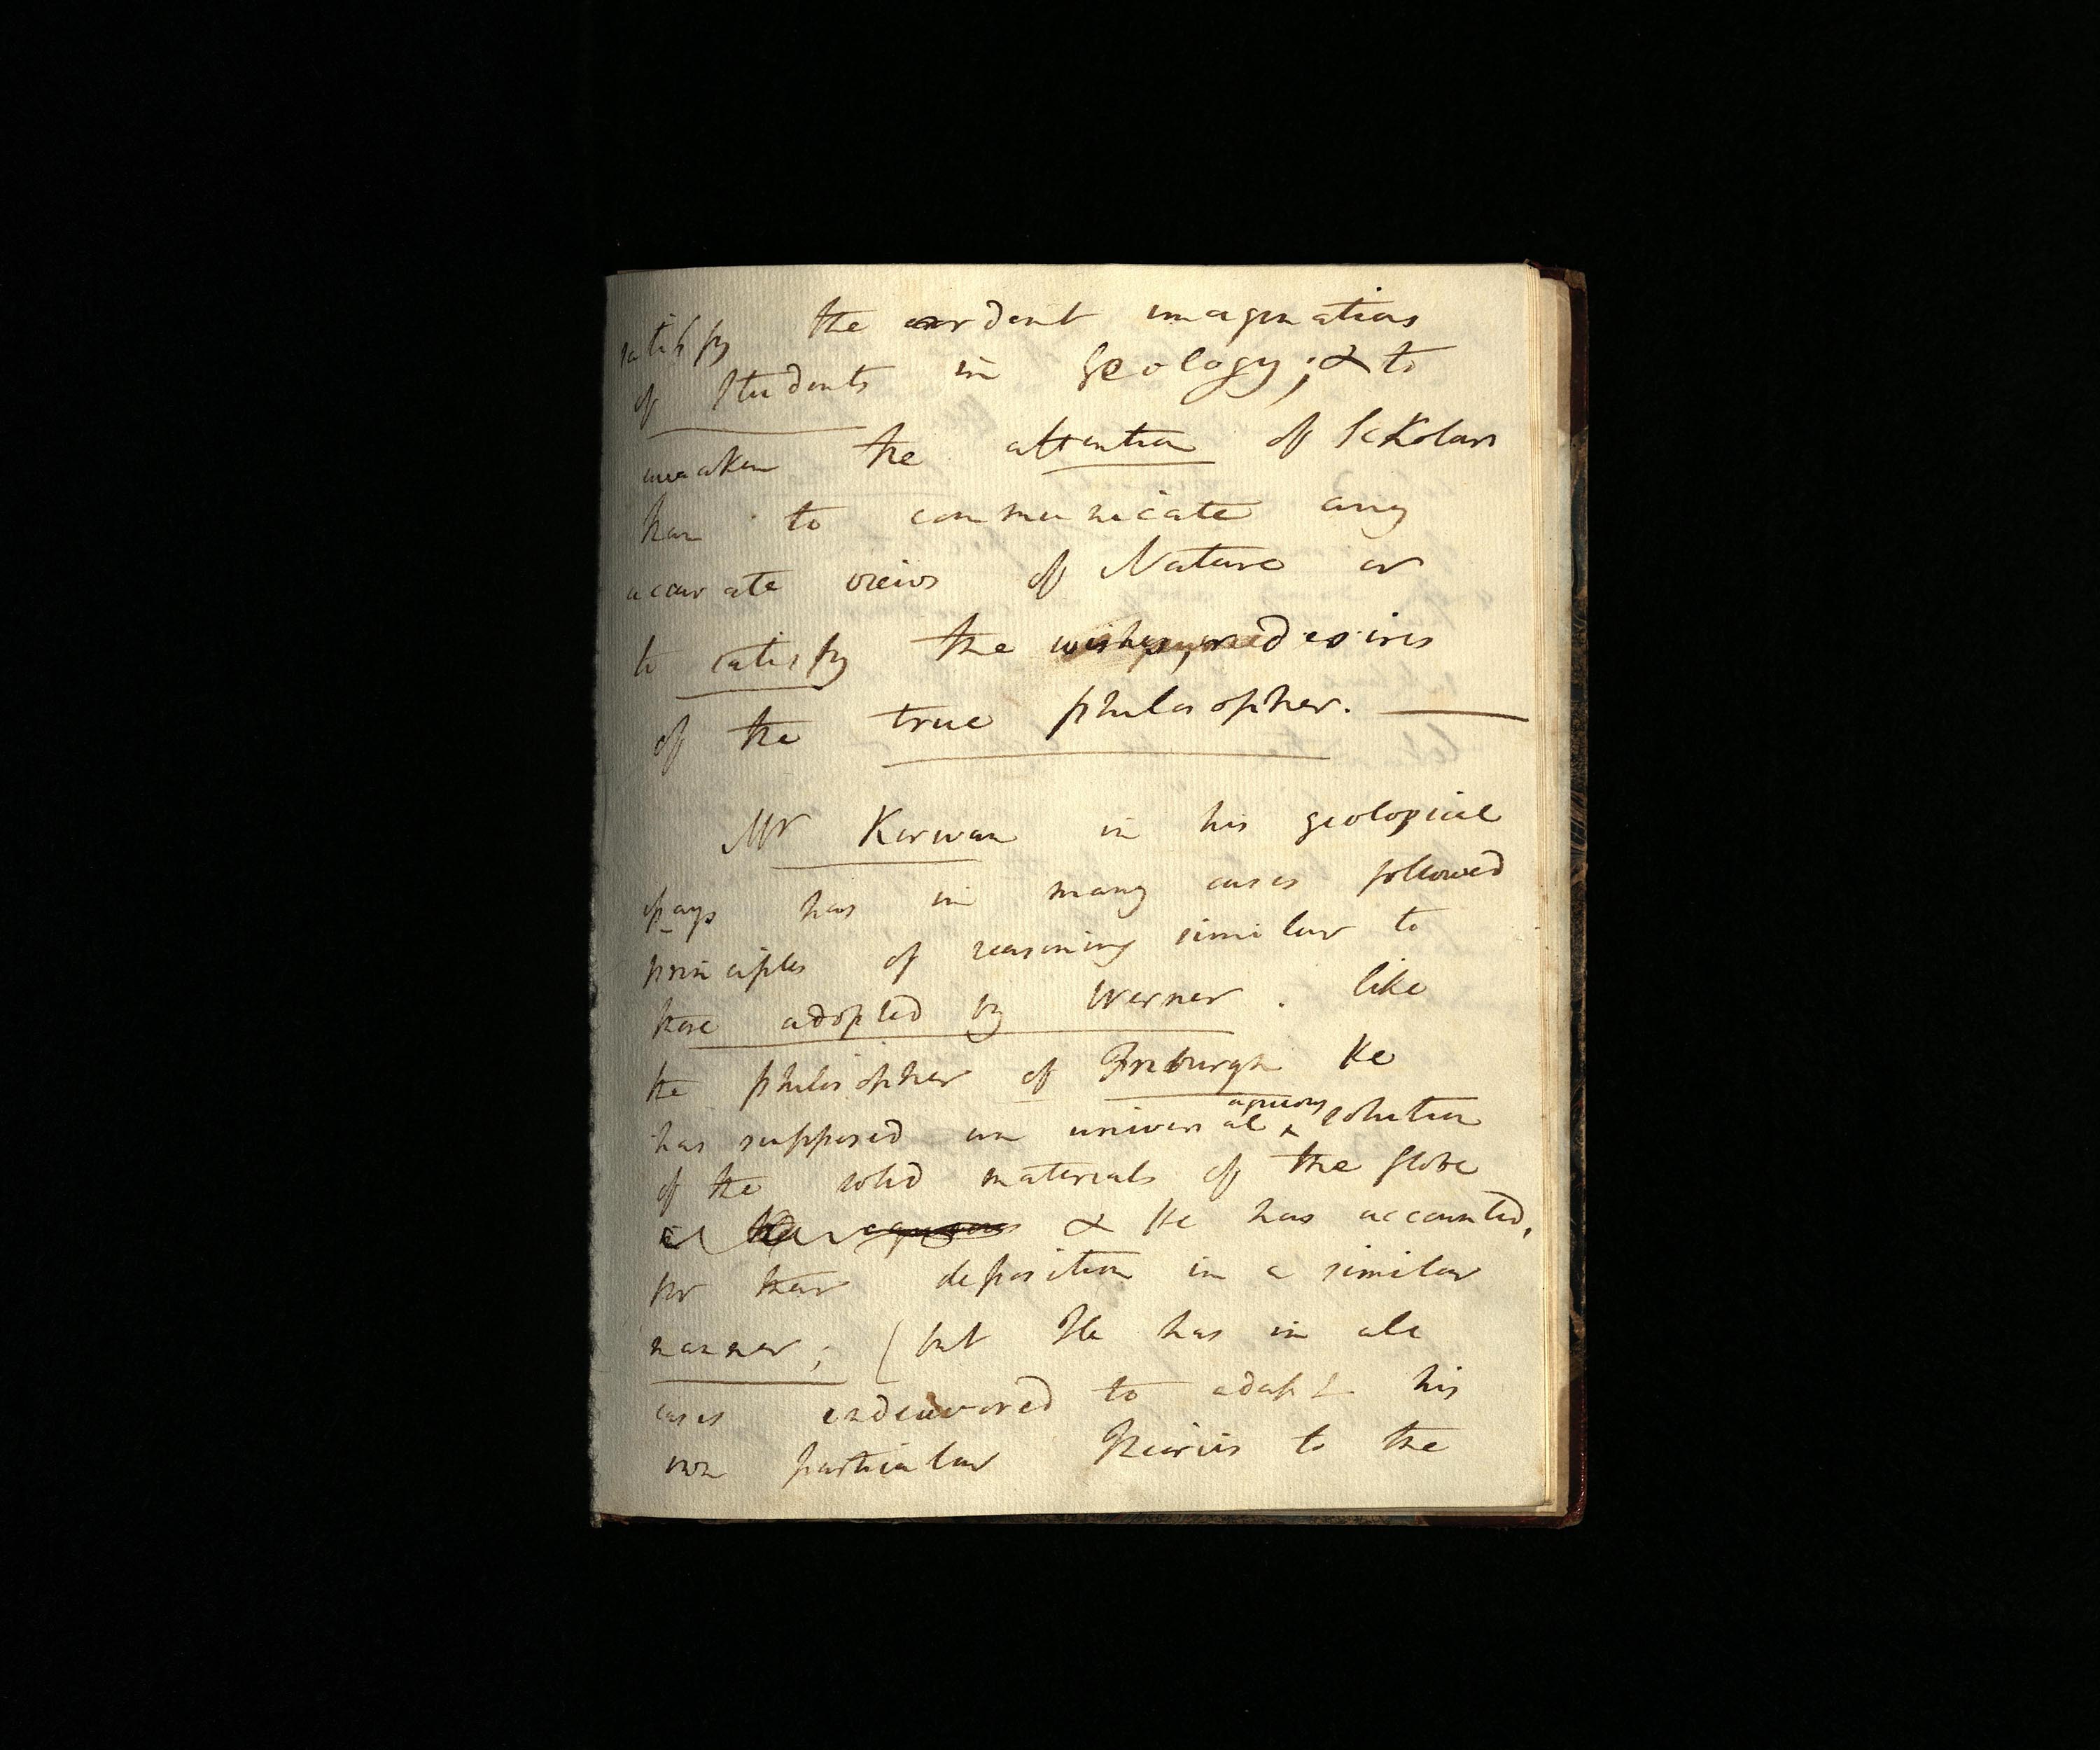 satisfy the ardent imaginations
of Students in Geology; & to
awaken the attention of Scholars
than to communicate any
accurate views of Nature or
to satisfy the desires
of the true philosopher. —
Mr Kirwan in his geological
essays has in many cases followed
principles of reasoning similar to
those adopted by Werner. like
the philosopher of Friburgh He
has supposed an universal aqueous solution
of the solid materials of the globe
& He has accounted,
for their deposition in a similar
manner; (but He has in all
cases endeavored to adapt his
own particular Theories to the